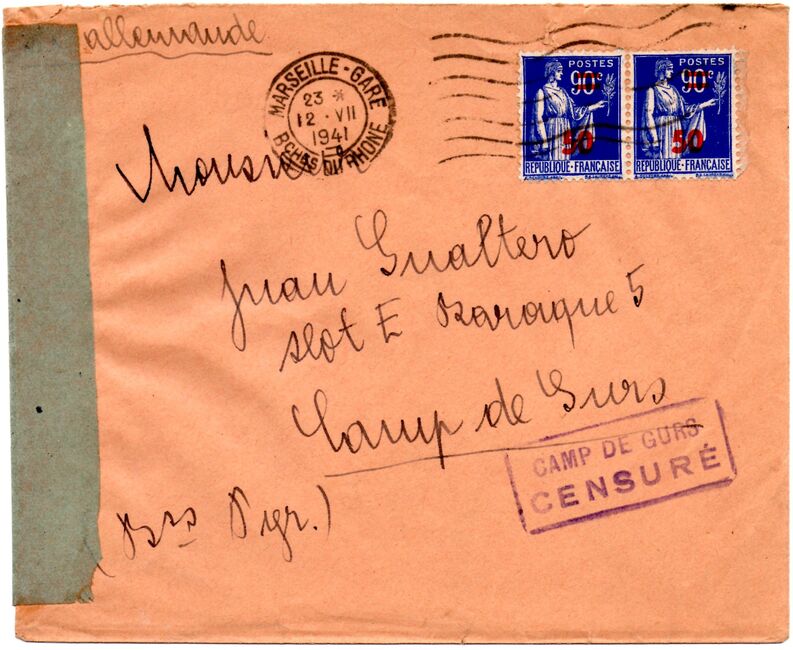 allemande
MARSEILLE-GARE
23 *
12 · VII
1941
BCHES DU RHONE
POSTES
90c
50
RÉPUBLIQUE·FRANÇAISE
POSTES
90c
50
RÉPUBLIQUE·FRANÇAISE
Monsieur
Juan Gualtero
Ilot E Baraque 5
Camp de Gurs
CAMP DE GURS
CENSURÉ
(Bses Pyr.)